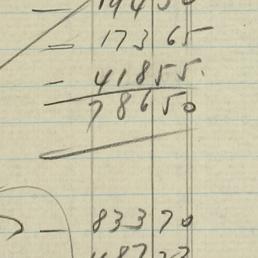 — 194 30
— 173 65
— 418 55
786 50
— 833 70